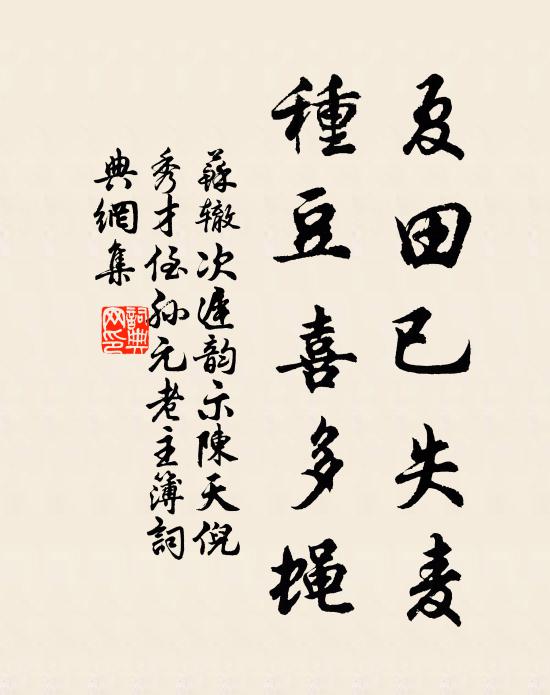 夏田已失麦
種豆喜多蝇
蘇辙次遲韵示陳天倪
秀才侄孫元老主簿詞
典網集
詞典
网印